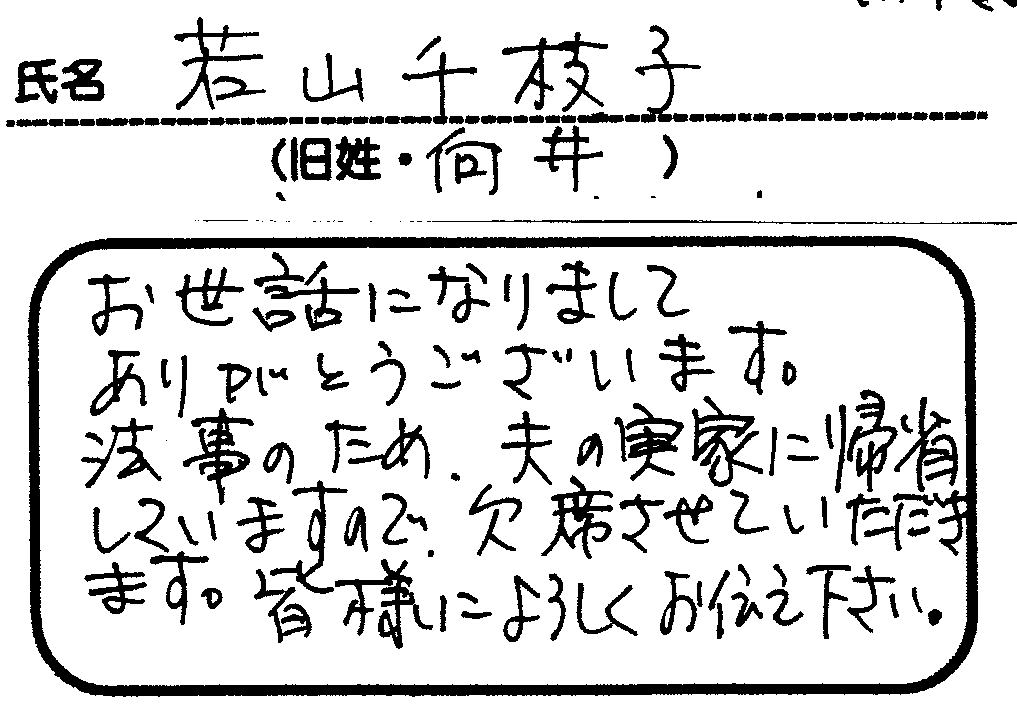 氏名 若山千枝子
(旧姓・向井 )
お世話になりまして
ありがとうございます。
法事のため、夫の実家に帰省
していますので、欠席させていただき
ます。皆様によろしくお伝え下さい。